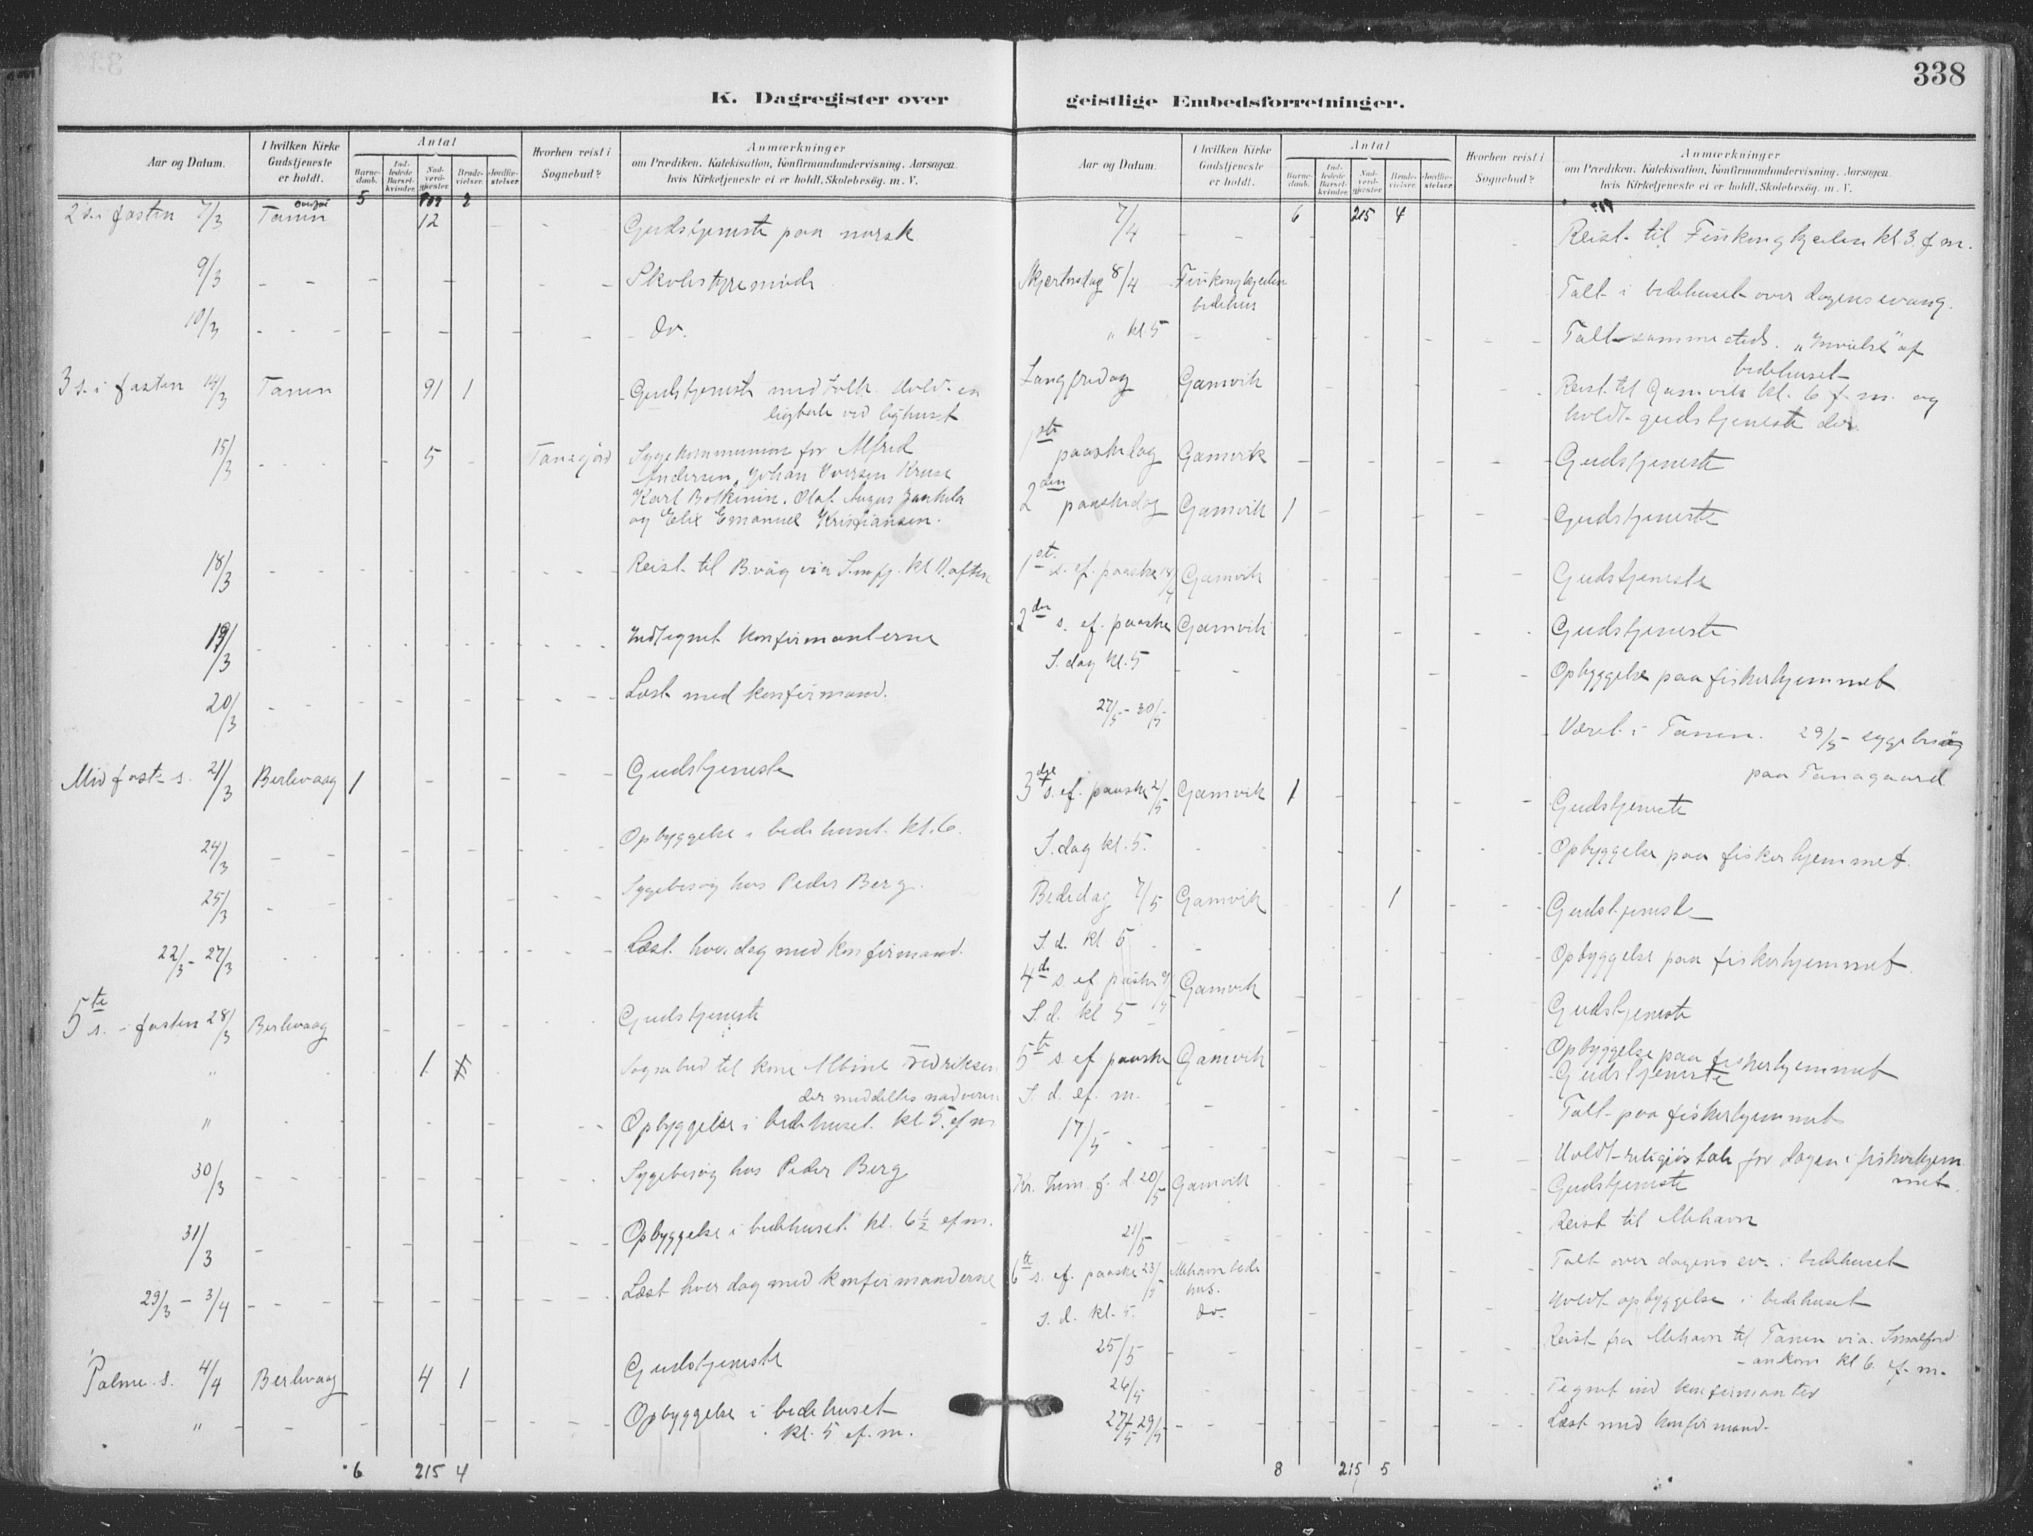 338
K. Dagregister over
geistlige Embedsforretninger.
Aar og Datum.
I hvilken Kirke Gudstjeneste er holdt.
Antal
Barnedaab.
Indledede Barselkvinder.
Nadverdgjester
Brudevielser.
Jordfæstelser.
Hvorhen reist i Sognebud?
Anmærkninger
om Prædiken, Katekisation, Konfirmandundervisning, Aarsagen,
hvis Kirketjeneste ei er holdt, Skolebesøg, m. V.
5 2
2 s. i fasten 7/3 Tanen 12 Gudstjeneste paa norsk
9/3 Skolestyremøde
10/3 do.
3 s. i fasten 14/3 Tanen 91 1 Gudstjeneste med tolk. Holdt en
ligtale ved lighuset
15/3 5 Tanagård Sygekommunion for Alfred
Andersen, Johan Iversen Kruse
Karl, Olaf
og Elix Emanuel Kristiansen.
18/3 Reist til B.våg via Smfj. kl 11. aften
19/3 Indtegnet konfirmanterne
20/3 Læst med konfirmand.
Midfaste s. 21/3 Berlevaag 1 Gudstjeneste
Opbyggelse i bedehuset kl. 6.
24/3
25/3 Sygebesøg hos Peder Berg.
22/3 - 27/3 Læst hver dag med konfirmand.
5te s. i fasten 28/3 Berlevaag Gudstjeneste
" 1 Sognebud til kone Albine Fredriksen
der meddeltes nadveren
" Opbyggelse i bedehuset kl 5. ef m
30/3 Sygebesøg hos Peder Berg
31/3 Opbyggelse i bedehuset kl. 6 1/2 ef m.
29/3 - 3/4 Læst hver dag med konfirmanderne
Palme s. 4/4 Berlevaag 4 1 Gudstjeneste
" Opbyggelse i bedehuset
kl. 5 ef. m.
6 215 4
Aar og Datum.
I hvilken Kirke Gudstjeneste er holdt.
Antal
Barnedaab.
Indledede Barselkvinder.
Nadverdgjester
Brudevielser.
Jordfæstelser.
Hvorhen reist i Sognebud?
Anmærkninger
om Prædiken, Katekisation, Konfirmandundervisning, Aarsagen,
hvis Kirketjeneste ei er holdt, Skolebesøg, m. V.
6 215 4
7/4 Reist til Finkongkjeilen kl 3. f m.
Skjærtorsdag 8/4 Finkongkjeilen
bedehus Talt i bedehuset over dagens evang.
" kl 5 Talt sammesteds. "Invielse" af
bedehuset
Langfredag Gamvik Reist til Gamvik kl. 6 f. m. og
holdt gudstjeneste der
1ste paaskedag Gamvik Gudstjeneste
2den paaskedag Gamvik 1 Gudstjeneste
1st. s. ef. paaske Gamvik Gudstjeneste
2den s. ef. paaske Gamvik Gudstjeneste
S. dag kl. 5 Opbyggelse paa fiskerhjemmet
27/5 - 30/5 Været i Tanen. 29/5 sygebesøg
paa Tanagaard
3die s. ef. paaske 2/5 Gamvik 1 Gudstjeneste
S. dag kl. 5. Opbyggelse paa fiskerhjemmet.
Bededag 7/5 Gamvik 1 Gudstjeneste
S. d. kl 5 Opbyggelse paa fiskerhjemmet.
4de s. ef paaske 9/5 Gamvik Gudstjeneste
S. d. kl 5 Opbyggelse paa fiskerhjemmet
5te s ef paaske Gamvik Gudstjeneste
S. d. ef. m. Talt paa fiskerhjemmet
17/5 Holdt religiøs tale for dagen i fiskerhjem
met.
Kr. him. f. d 20/5 Gamvik Gudstjeneste
21/5 Reist til Mehavn
6te s. ef. paaske 23/5 Mehavn bede
hus. Talt over dagens ev. i bedehuset
s. d. kl. 5. do Holdt opbyggelse i bedehuset
25/5 Reist fra Mehavn til Tanen via. Smalfjord
- ankom kl 6. ef. m.
26/5 Tegnet ind konfirmanter
27/5 29/5 Læst med konfirmand.
8 215 5